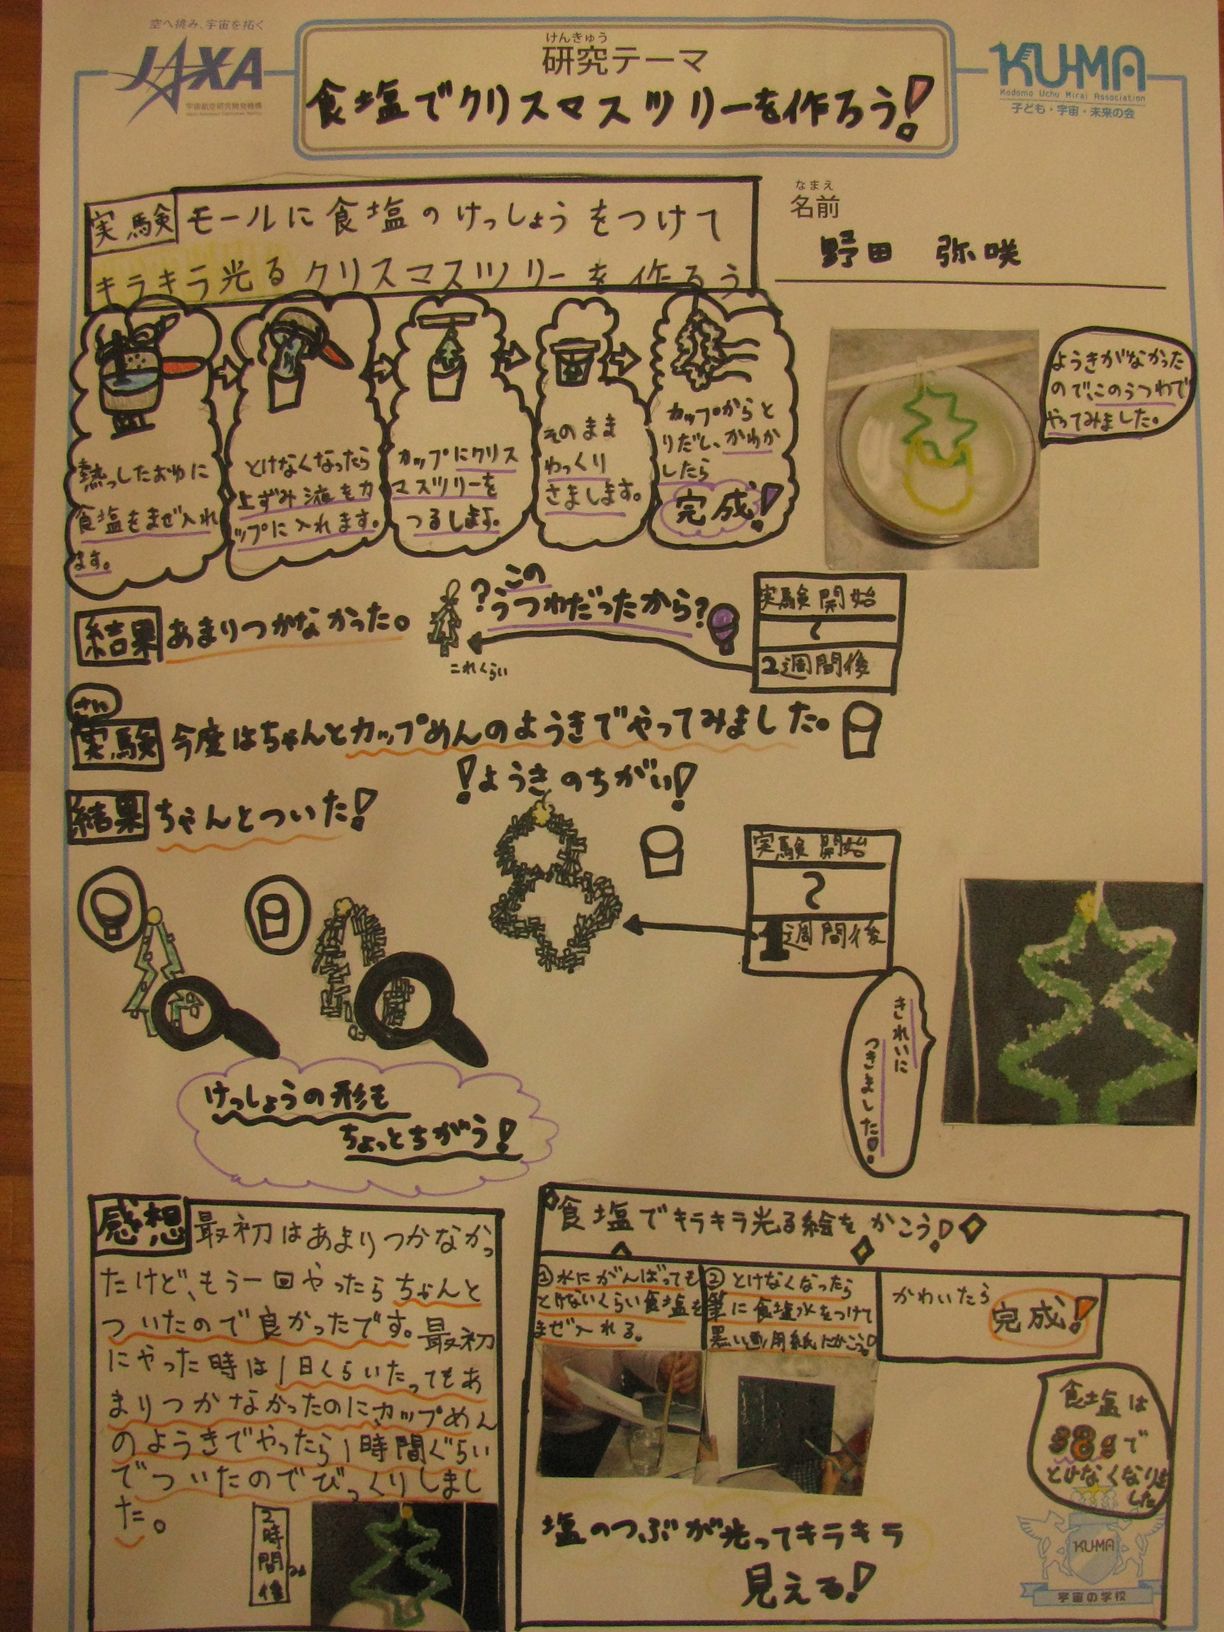 空へ挑み、宇宙を拓く
JAXA
宇宙航空研究開発機構
けんきゅう
研究テーマ
食塩でクリスマスツリーを作ろう!
KU-MA
Kodomo Uchu Mirai Association
子ども・宇宙・未来の会
なまえ
名前
野田 弥咲
実験 モールに食塩のけっしょうをつけて
キラキラ光るクリスマスツリーを作ろう
熱っしたおゆに
食塩をまぜ入れ
ます。
とけなくなったら
上ずみ液をカ
ップに入れます。
カップにクリス
マスツリーを
つるします。
そのまま
ゆっくり
さまします。
カップからと
りだし、かわか
したら
完成!
ようきがなかった
ので、このうつわで
やってみました。
結果 あまりつかなかった。
これくらい
?この
うつわだったから?
実験開始
〜
2週間後
さい
実験 今度はちゃんとカップめんのようきでやってみました。
結果 ちゃんとついた!
!ようきのちがい!
実験開始
〜
1週間後
きれいに
つきました!
けっしょうの形も
ちょっとちがう!
感想 最初はあまりつかなかっ
たけど、もう一回やったらちゃんと
ついたので良かったです。最初
にやった時は1日くらいたってもあ
まりつかなかったのにカップめん
のようきでやったら1時間ぐらい
でついたのでびっくりしまし
た。
2時間後
食塩でキラキラ光る絵をかこう!
①水にがんばっても
とけないくらい食塩を
まぜ入れる。
②とけなくなったら
筆に食塩水をつけて
黒い画用紙にかこう!
かわいたら
完成!
食塩は
38gで
とけなくなりま
した
塩のつぶが光ってキラキラ
見える!
KU-MA
宇宙の学校